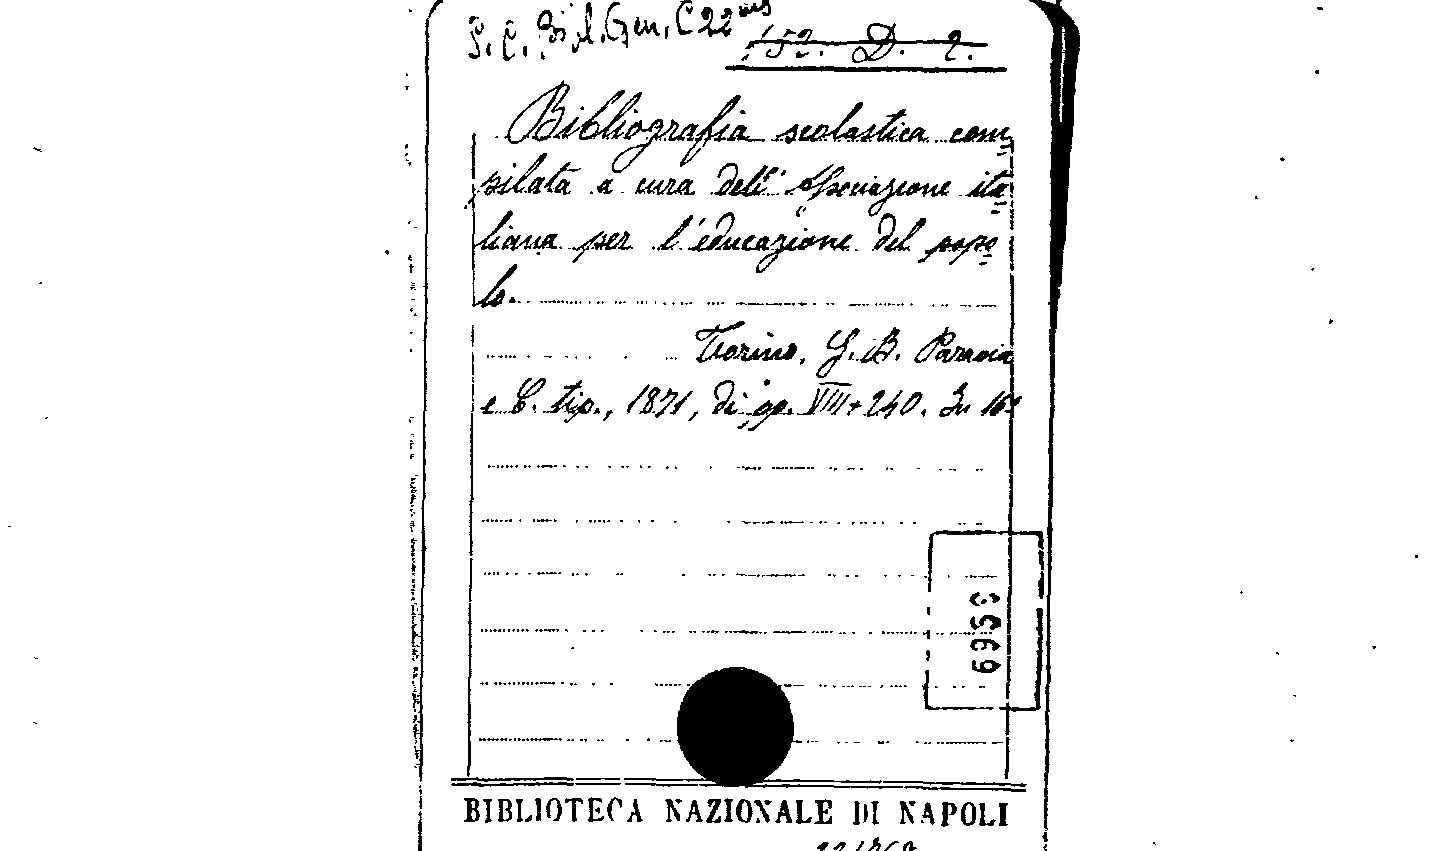 S. C. Bibl. Gen. C 22 bis
152. D. 2.
Bibliografia scolastica com
pilata a cura dell' Associazione ita
liana per l'educazione del popo
lo.
Torino, G. B. Paravia
e C. tip., 1871, di pp. VIII+240. In 16°
BIBLIOTECA NAZIONALE DI NAPOLI